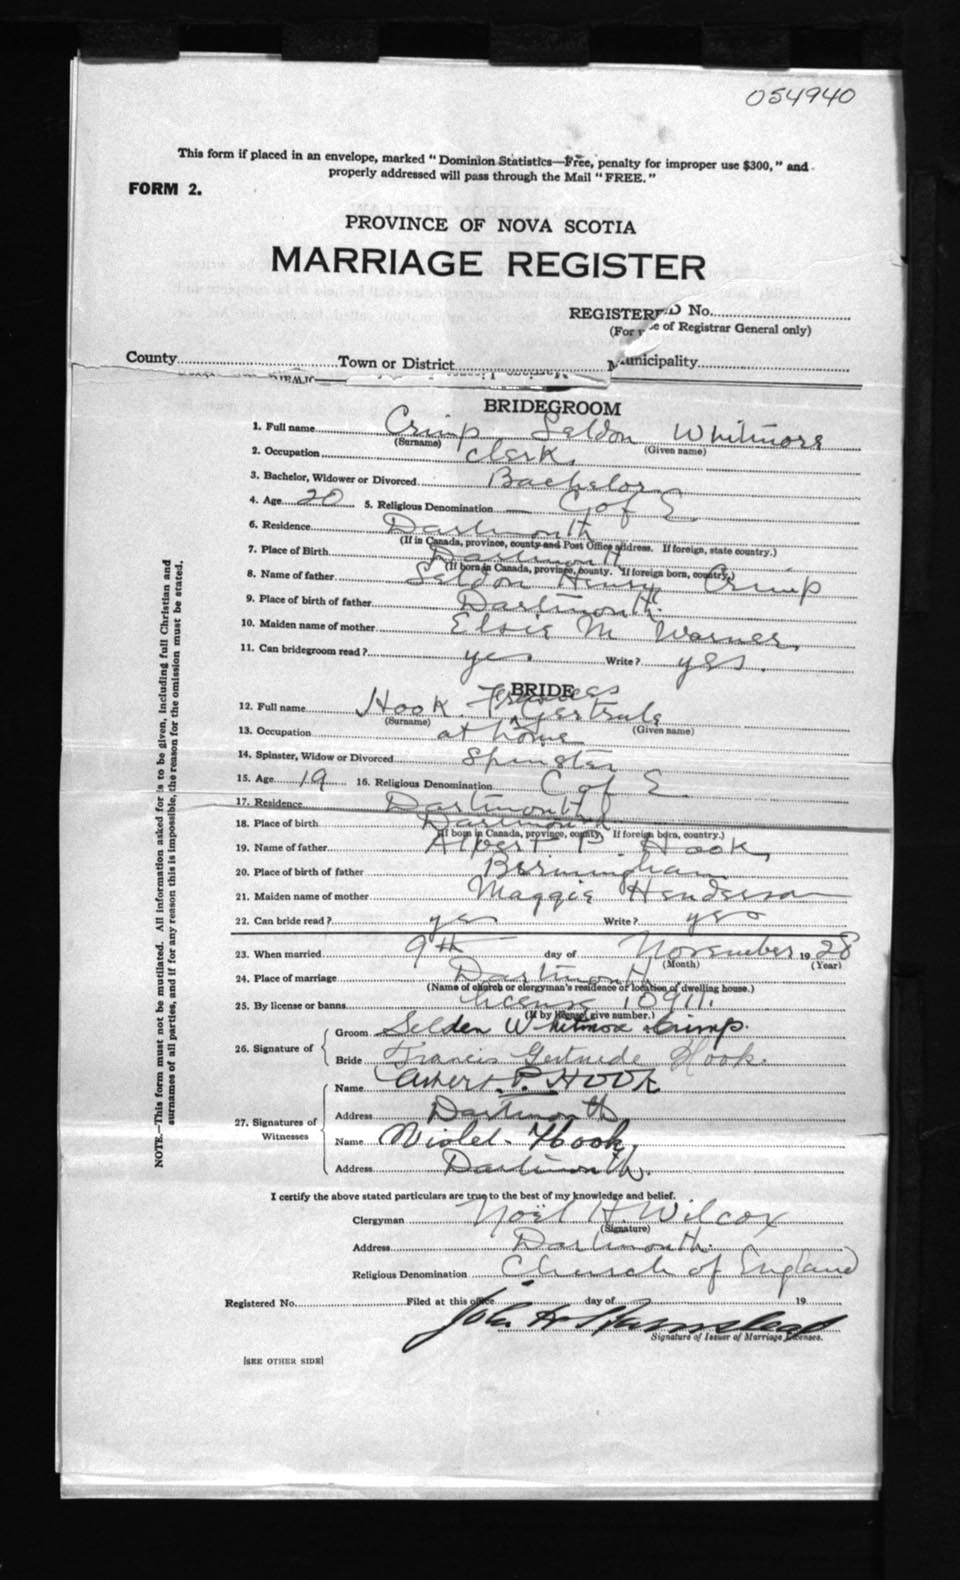 054940
This form if placed in an envelope, marked "Dominion Statistics—Free, penalty for improper use $300," and
properly addressed will pass through the Mail "FREE."
FORM 2.
PROVINCE OF NOVA SCOTIA
MARRIAGE REGISTER
REGISTERED No.
(For use of Registrar General only)
County Town or District Municipality
BRIDEGROOM
1. Full name Crimp Seldon Whitmore
(Surname) (Given name)
2. Occupation clerk
3. Bachelor, Widower or Divorced Bachelor
4. Age 20 5. Religious Denomination C of E
6. Residence Dartmouth
(If in Canada, province, county and Post Office address. If foreign, state country.)
7. Place of Birth Dartmouth
(If born in Canada, province, county. If foreign born, country.)
8. Name of father Seldon Henry Crimp
9. Place of birth of father Dartmouth.
10. Maiden name of mother Elsie M Warner
11. Can bridegroom read? yes Write? yes.
BRIDE
12. Full name Hook. Frances Gertrude
(Surname) (Given name)
13. Occupation at home
14. Spinster, Widow or Divorced Spinster
15. Age 19 16. Religious Denomination C of E
17. Residence Dartmouth
18. Place of birth Dartmouth
(If born in Canada, province, county. If foreign born, country.)
19. Name of father Albert P. Hook
20. Place of birth of father Birmingham
21. Maiden name of mother Maggie Henderson
22. Can bride read? yes Write? yes
23. When married 9th day of November 1928
(Month) (Year)
24. Place of marriage Dartmouth
(Name of church or clergyman's residence or location of dwelling house.)
25. By license or banns license 10911.
(If by license give number.)
26. Signature of
Groom Selden Whitmore Crimp.
Bride Francis Gertrude Hook.
27. Signatures of Witnesses
Name Albert P. Hook
Address Dartmouth
Name Violet Hook.
Address Dartmouth.
I certify the above stated particulars are true to the best of my knowledge and belief.
Clergyman Noël H. Wilcox
(Signature)
Address Dartmouth.
Religious Denomination Church of England
Registered No. Filed at this office day of 19
John H
Signature of Issuer of Marriage Licenses.
[SEE OTHER SIDE]
NOTE.—This form must not be mutilated. All information asked for is to be given, including full Christian and
surnames of all parties, and if for any reason this is impossible, the reason for the omission must be stated.